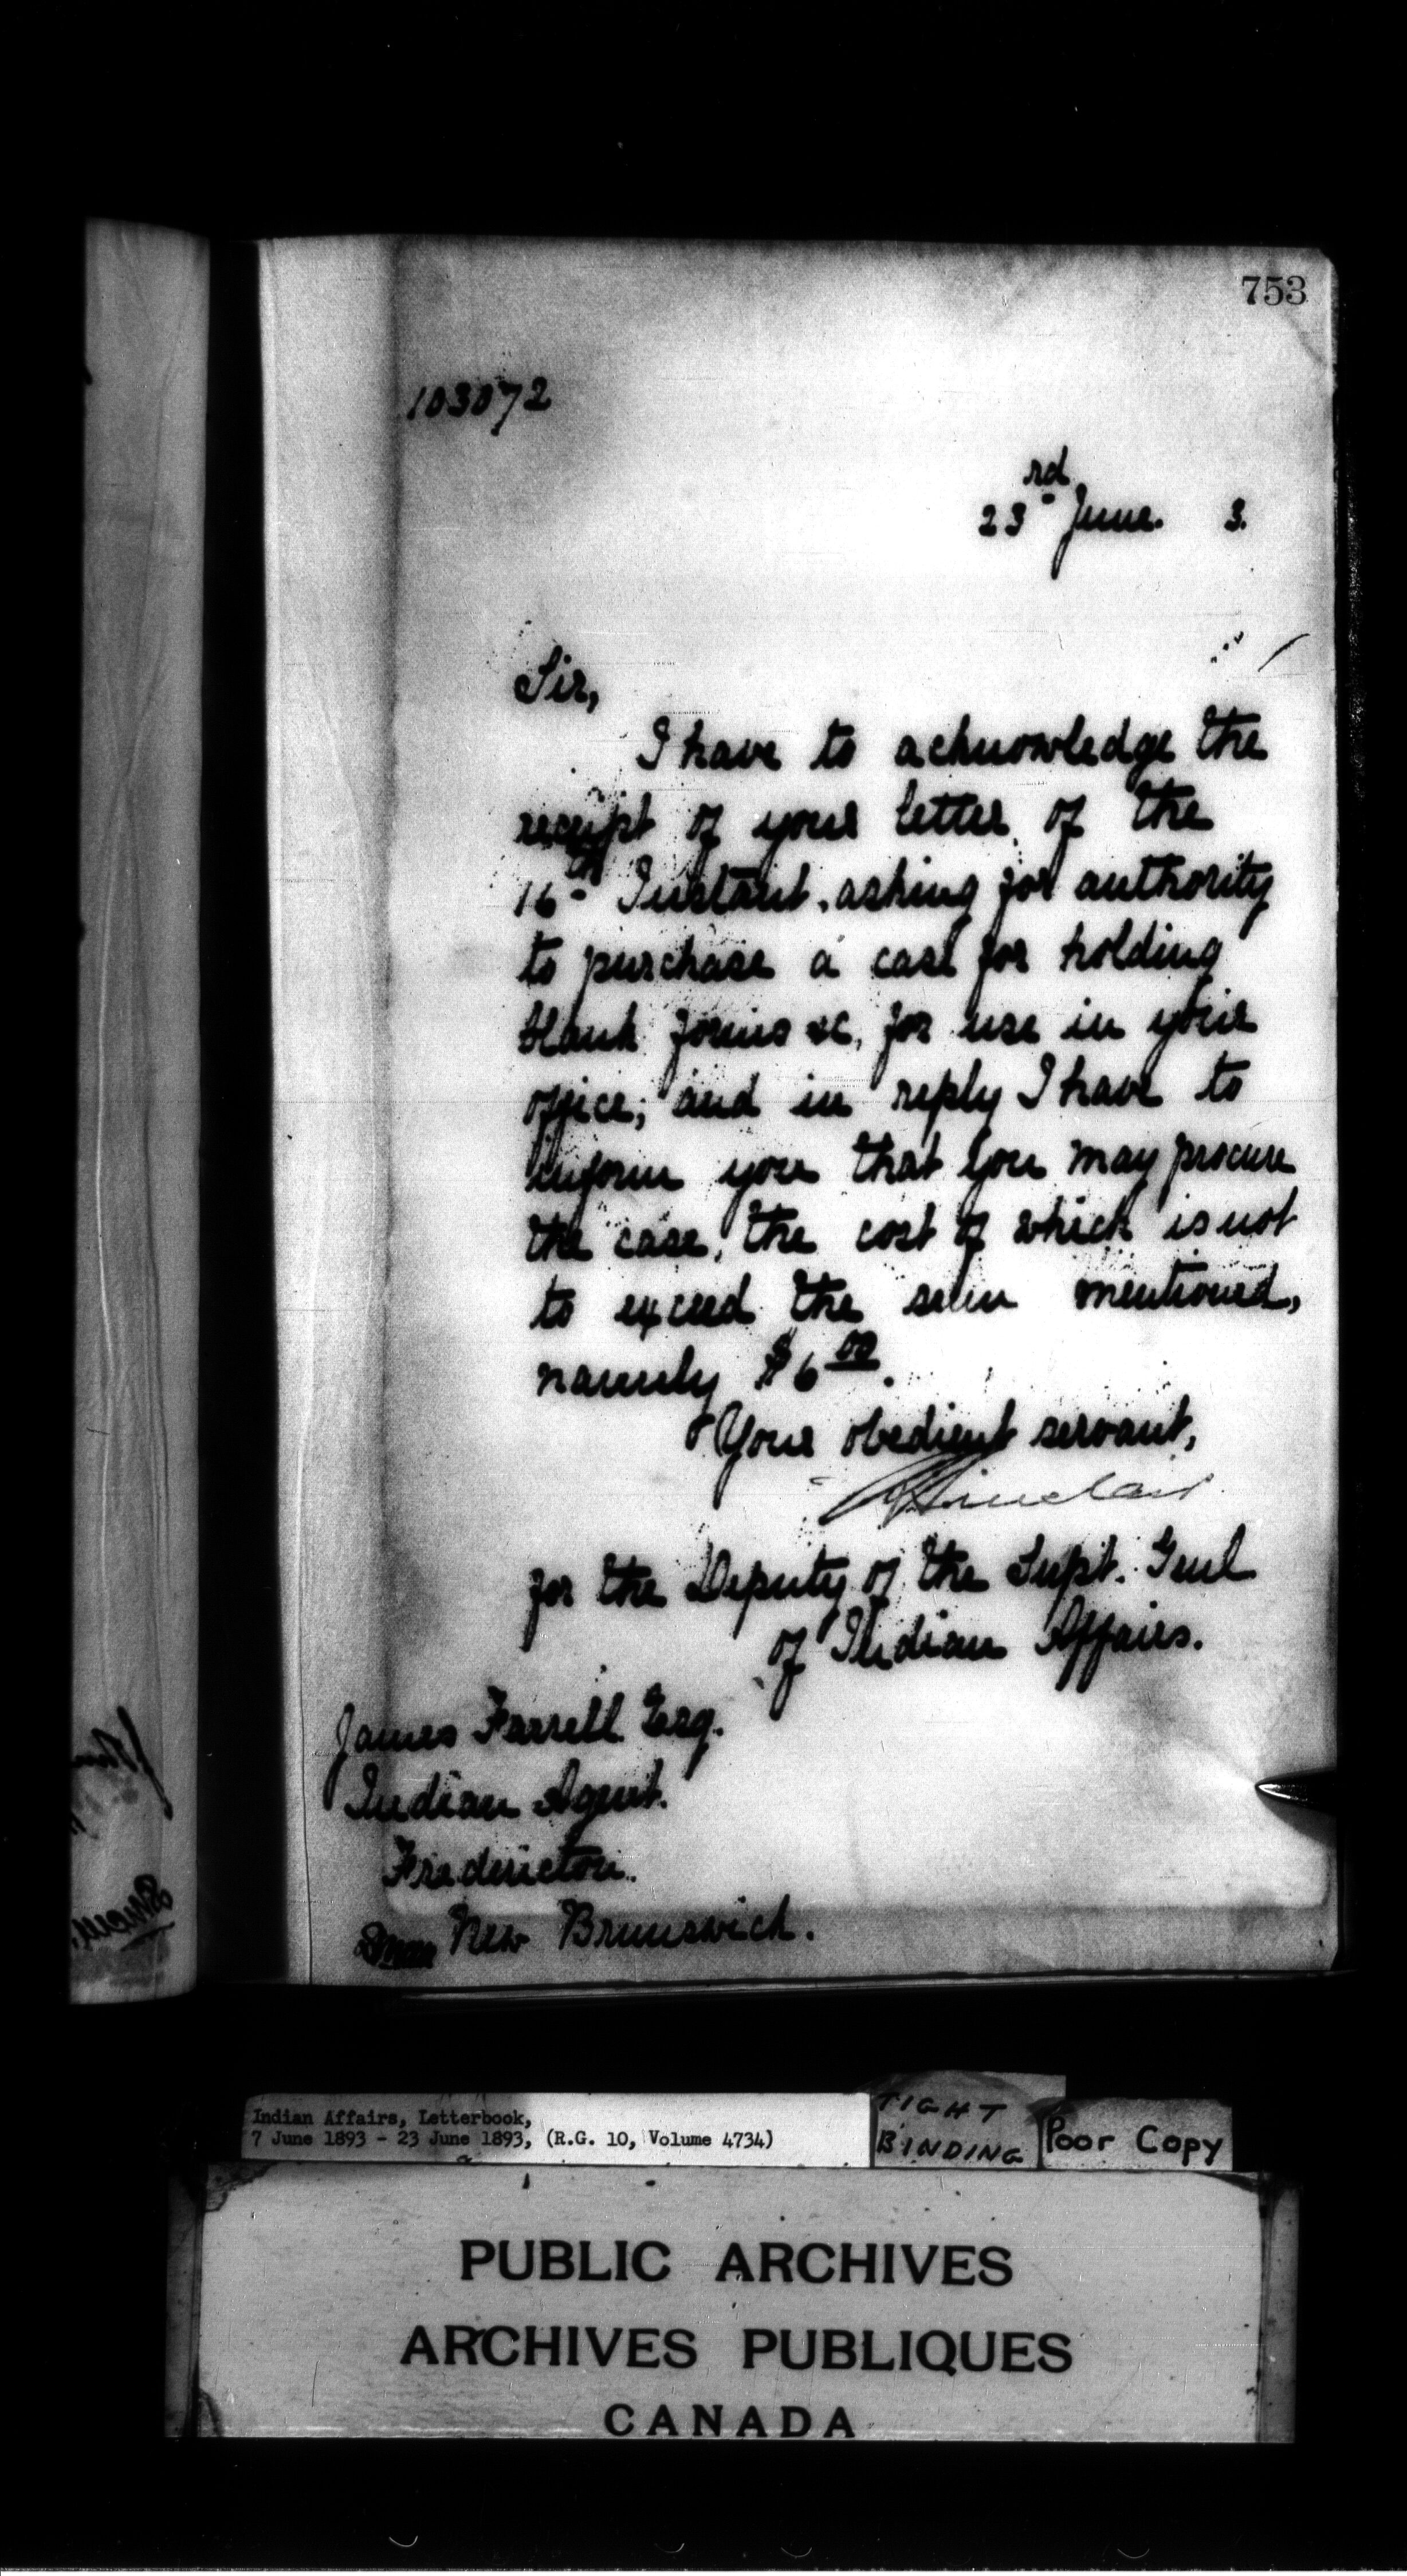 753
103072
23rd June. 3.
Sir,
I have to acknowledge the
receipt of your letter of the
16th Instant, asking for authority
to purchase a case for holding
blank forms &c, for use in your
office; and in reply I have to
inform you that you may procure
the case, the cost of which is not
to exceed the sum mentioned,
namely $6 00.
Your obedient servant,
Sinclair
for the Deputy of the Supt. Genl
of Indian Affairs.
James Farrell Esq.
Indian Agent.
Fredericton.
New Brunswick.
Indian Affairs, Letterbook,
7 June 1893 - 23 June 1893, (R.G. 10, Volume 4734)
TIGHT
BINDING
Poor Copy
PUBLIC ARCHIVES
ARCHIVES PUBLIQUES
CANADA